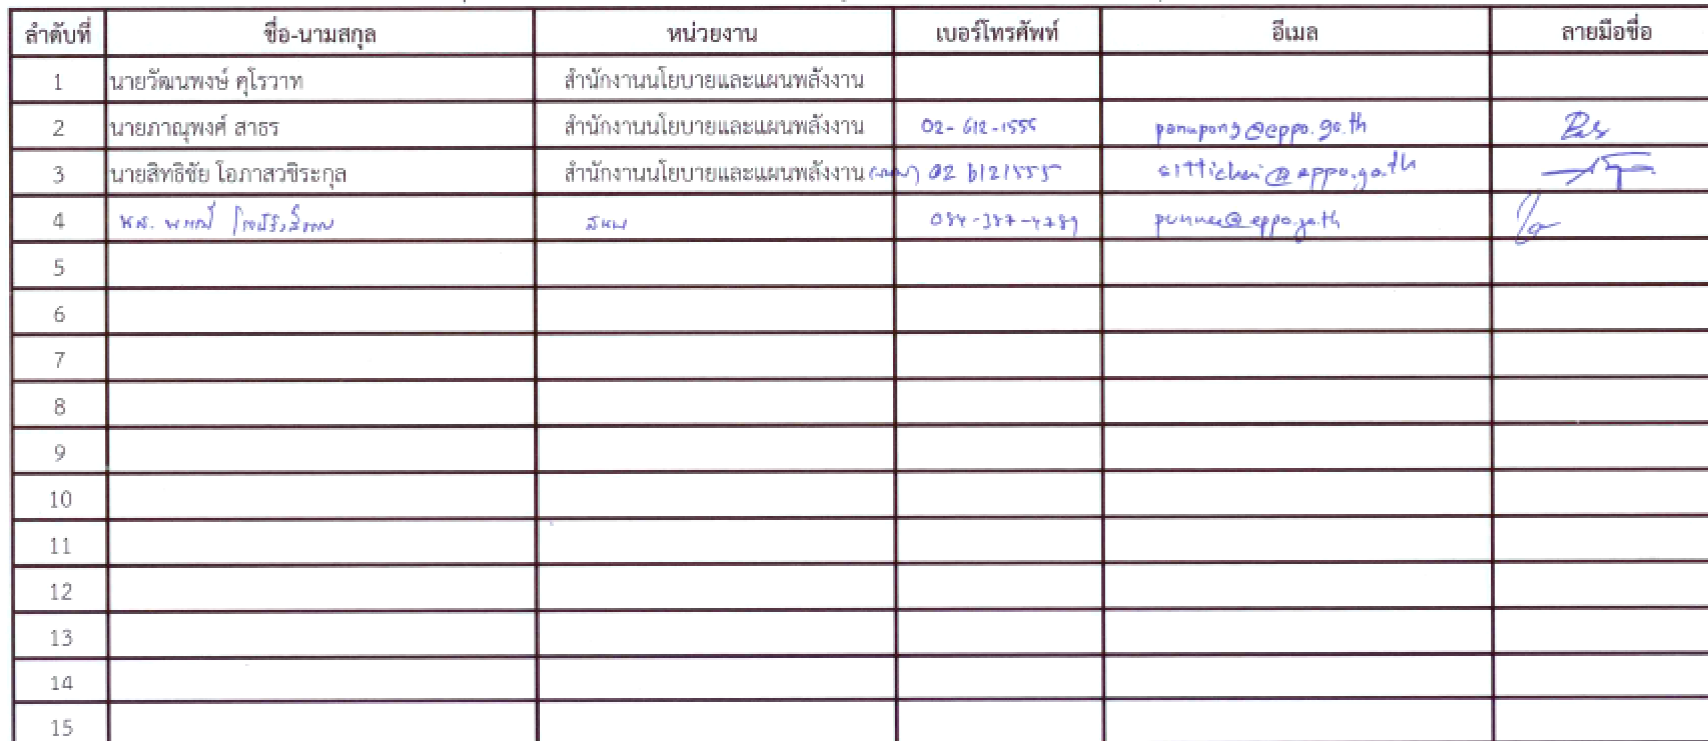 ลำดับที่ ชื่อ-นามสกุล หน่วยงาน เบอร์โทรศัพท์ อีเมล ลายมือชื่อ
1 นายวัฒนพงษ์ คุโรวาท สำนักงานนโยบายและแผนพลังงาน
2 นายภาณุพงศ์ สาธร สำนักงานนโยบายและแผนพลังงาน 02-612-1555 panupong@eppo.go.th
3 นายสิทธิชัย โอภาสวชิระกุล สำนักงานนโยบายและแผนพลังงาน 02 6121555 sittichai@eppo.go.th
4 สนพ 084-387-4789 punnee@eppo.go.th
5
6
7
8
9
10
11
12
13
14
15